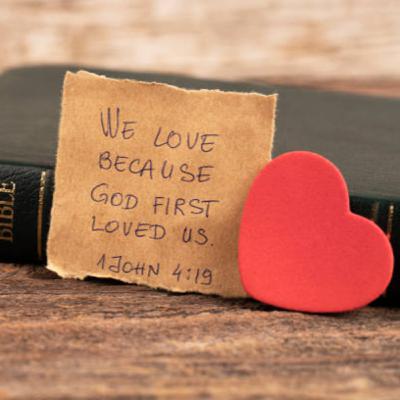 WE LOVE
BECAUSE
GOD FIRST
LOVED US.
1 JOHN 4:19
BIBLE